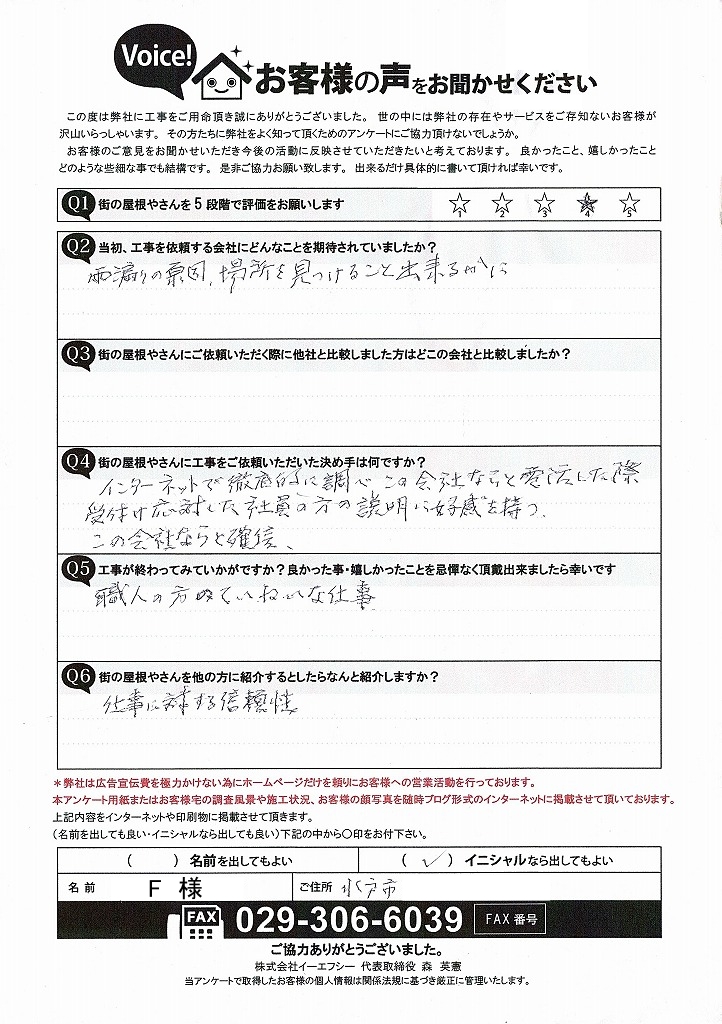 Voice!
お客様の声をお聞かせください
この度は弊社に工事をご用命頂き誠にありがとうございました。 世の中には弊社の存在やサービスをご存知ないお客様が
沢山いらっしゃいます。 その方たちに弊社をよく知って頂くためのアンケートにご協力頂けないでしょうか。
お客様のご意見をお聞かせいただき今後の活動に反映させていただきたいと考えております。 良かったこと、嬉しかったこと
どのような些細な事でも結構です。 是非ご協力お願い致します。 出来るだけ具体的に書いて頂ければ幸いです。
Q1 街の屋根やさんを5段階で評価をお願いします
1 2 3 4 5
Q2 当初、工事を依頼する会社にどんなことを期待されていましたか?
雨漏りの原因、場所を見つけること出来るかに
Q3 街の屋根やさんにご依頼いただく際に他社と比較しました方はどこの会社と比較しましたか?
Q4 街の屋根やさんに工事をご依頼いただいた決め手は何ですか?
インターネットで徹底的に調べ この会社ならと電話した際
受付け応対した社員の方の説明に好感を持つ、
この会社ならと確信、
Q5 工事が終わってみていかがですか?良かった事・嬉しかったことを忌憚なく頂戴出来ましたら幸いです
職人の方々ていねいな仕事
Q6 街の屋根やさんを他の方に紹介するとしたらなんと紹介しますか?
仕事に対する信頼性
*弊社は広告宣伝費を極力かけない為にホームページだけを頼りにお客様への営業活動を行っております。
本アンケート用紙またはお客様宅の調査風景や施工状況、お客様の顔写真を随時ブログ形式のインターネットに掲載させて頂いております。
上記内容をインターネットや印刷物に掲載させて頂きます。
(名前を出しても良い・イニシャルなら出しても良い)下記の中から〇印をお付下さい。
( ) 名前を出してもよい ( ✓ ) イニシャルなら出してもよい
名 前 F 様 ご住所 水戸市
FAX 029-306-6039 FAX 番号
ご協力ありがとうございました。
株式会社イーエフシー 代表取締役 森 英憲
当アンケートで取得したお客様の個人情報は関係法規に基づき厳正に管理いたします。